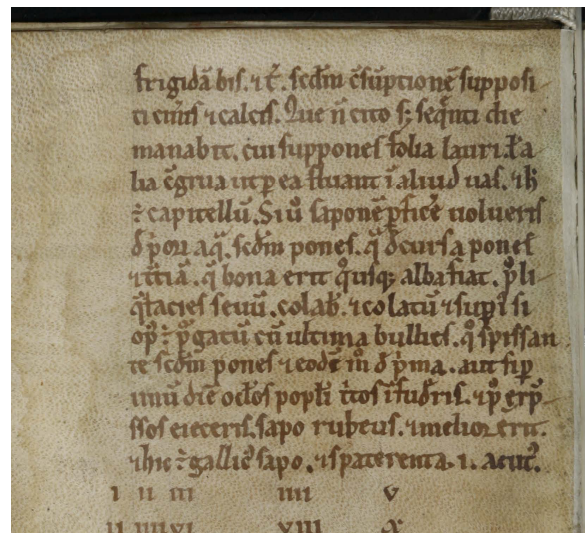 frigidā bis. ⁊ t̄. scdm c̄sūptionē supposi
ti cin̄is ⁊ calcis. Que n̄ cito s; seq̄nti die
manabit. cui suppones folia lauri. ł a
lia c̄grua ut ꝑ ea fluant ī aliud uas. ⁊ h̄
ē capitellū. Si ū saponē ꝑficē uolueris
aq̄. scdm pones. q̄ dcursa pones
⁊ t̄tiā. q̄ bona erit q̊usq; alba fiat.
colab̄. ⁊ colatū ⁊ suꝑi si
cū ultima bullies. q̊ spissan
te scdm pones ⁊ eodē m̊ d p̄ma. aut sup̄
unū diē oc̄los popl̄i
ssos eieceris. sapo rubeus. ⁊ melior erit.
⁊ hic ē gallic̄ sapo. ⁊ spaterenta .i. acut̄.
I II III IIII V
II IIII VI VIII X